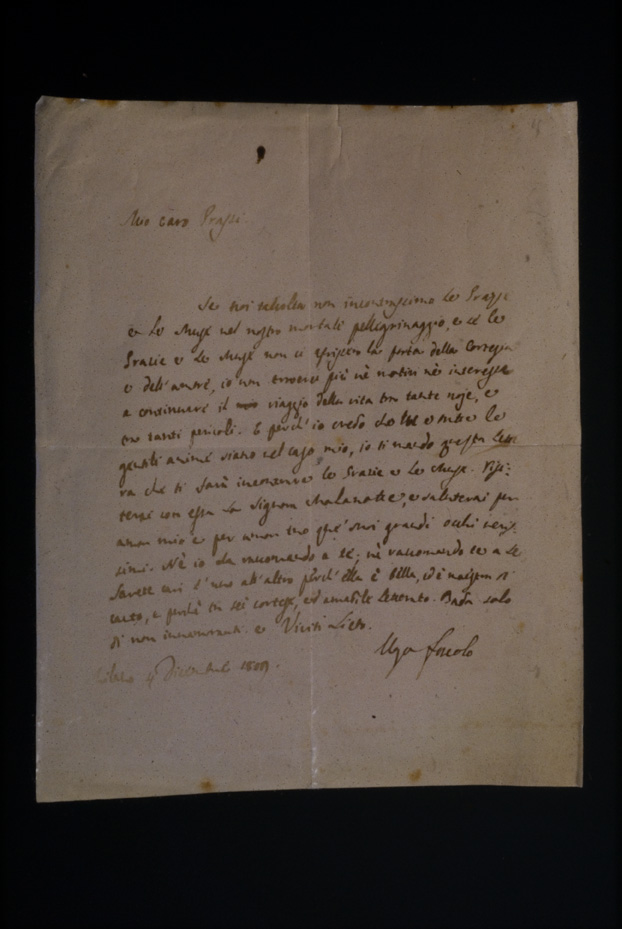 Mio caro
Se noi talvolta non incontrassimo le Grazie
e le Muse nel nostro mortale pellegrinaggio, e se le
Grazie e le Muse non ci aprissero la porta della Cortesia
e dell'amore, io non troverei più nè motivi nè interesse
a continuare il viaggio della vita tra tante noje, e
tra tanti pericoli. E perch'io credo che tu e tutte le
gentili anime siano nel caso mio, io ti mando questa lette
ra che ti farà incontrare le Grazie e le Muse. Visi-
terai con essa la Signora Malanotte, e saluterai per
amor mio e per amor tuo que' suoi grandi occhi neris
simi. Nè io la raccomando a te; nè raccomando te a Lei
Sarete cari l'uno all'altro perch'ella è bella, ed è maestra di
canto, e perchè tu sei cortese, ed amabile Bada solo
di non innamorarti. e Vivi Lieto.
Ugo Foscolo
4 Dicembre 1809.